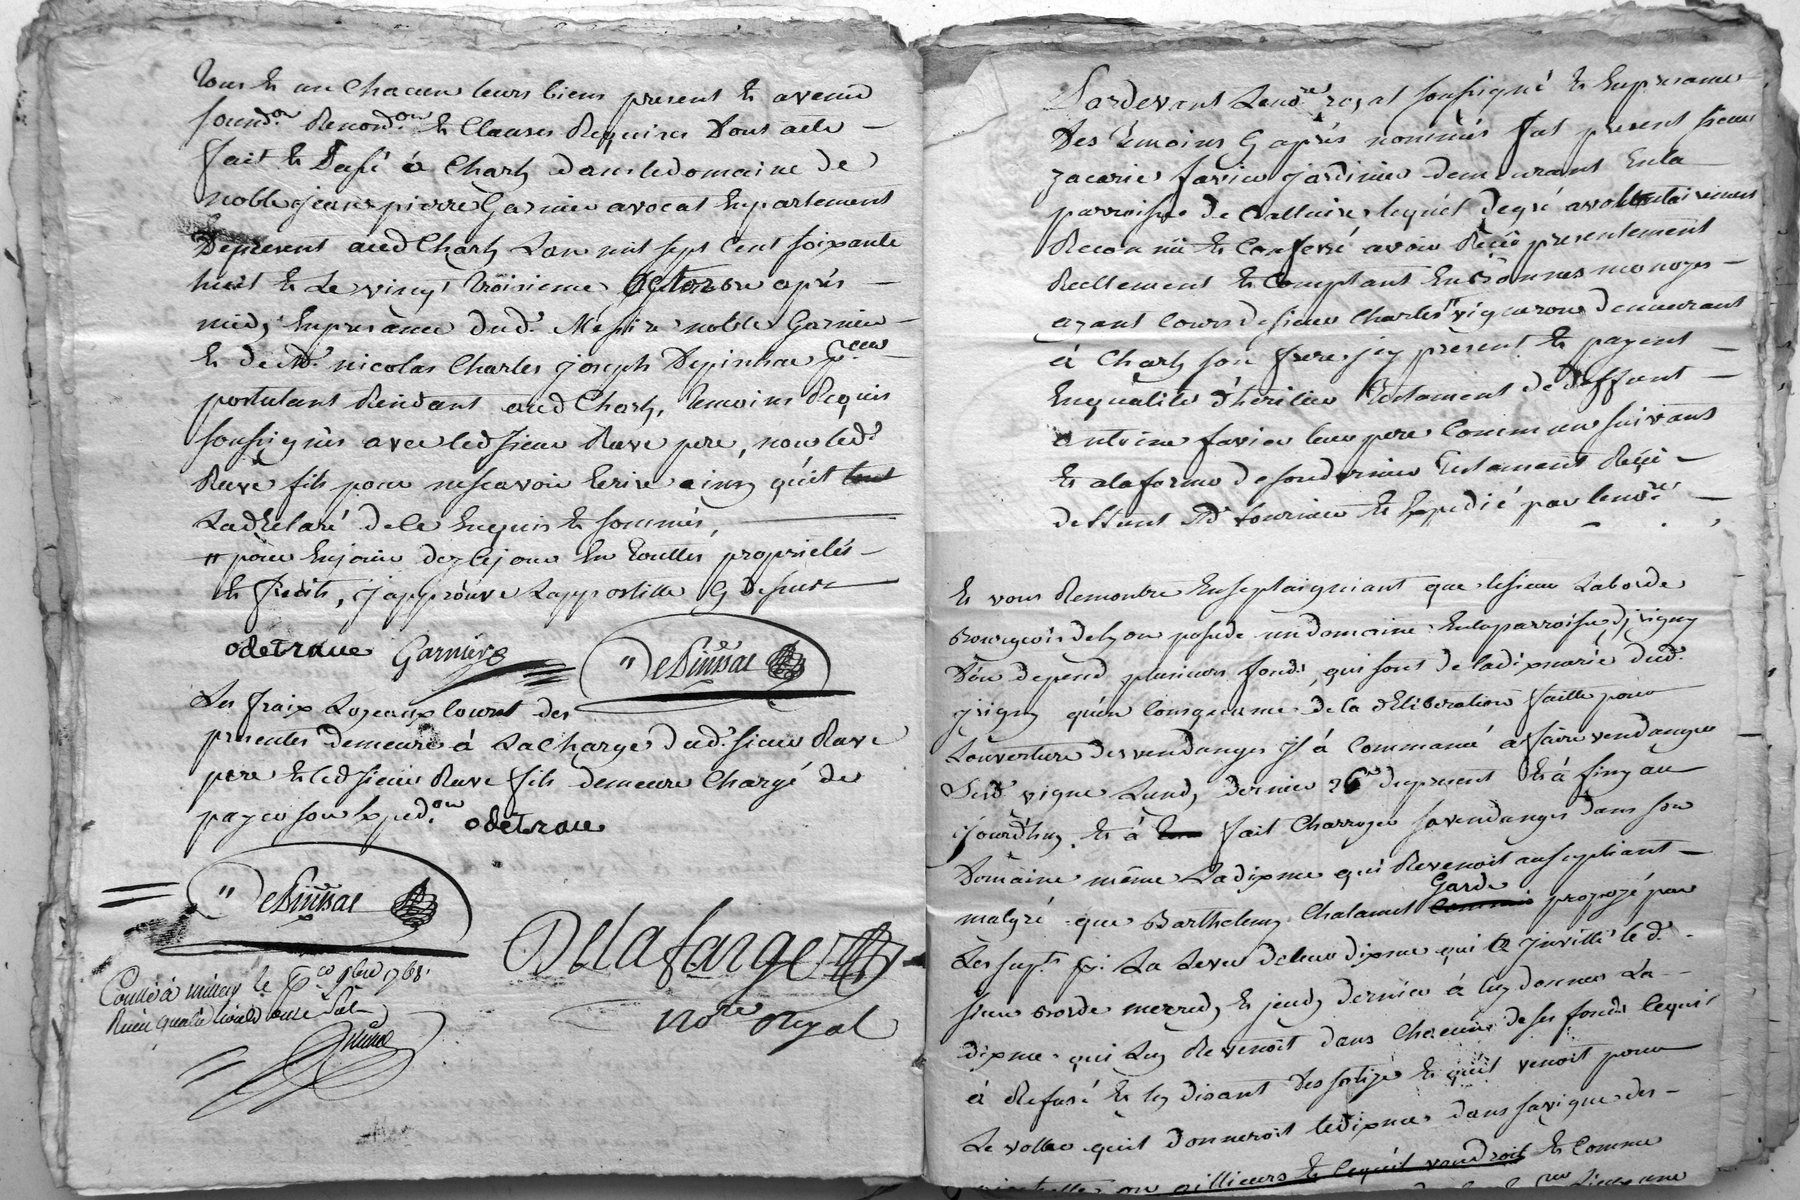 tous et un chacun leurs biens present et avenir
soumd.on Renond.on et Clauses Requises Dont acte
fait et Passé à Charly dans le domaine de
noble jean pierre Garnier avocat En parlement
De present aud Charly Lan mil sept Cent soixante
huit et Le vingt troisieme octobre après
midy En presance dud. Messire noble Garnier
et de Me. nicolas Charles joseph Depinsac p.eur
postulant Residant aud Charly, temoins Requis
soussignés avec led sieur Rave pere, non led.
Rave fils pour ne scavoir Ecrire ainsy qu'il
La déclaré de ce Enquis et sommés,
# pour En jouir dez ce jour En touttes proprietés
et fruits, j'approuve Lappostille cy dessus
odetraue Garnier DePinssac
Les fraix Loyeaux couts des
presentes demeure à La charge dud. sieur Rave
pere et led sieur Rave fils demeure Chargé de
payer son Exped.on odetraue
DePinssac
Delafarge
no.re Royal
Conllé à millery le 9bre 1768
Receu quatre livres onze sols
Pardevant Le no.re royal soussigné et En presance
Des temoins Cy après nommés fut present sieur
zacarie favier jardinier demeurant En la
parroisse de Calluire lequel de gré a volontairement
Reconnu et Confessé avoir Reçu presentement
Reellement et Comptant En Bonnes monoyes
ayant Cours de sieur Charles vigneron demeurant
à Charly son frere icy present et payent
En qualité d'heritier testament de deffunt
antoine favier leur pere Commun suivant
et a la forme de son dernier Testament Reçu
deffunt Me. fournier et Expedié par le no.re
Et vous Remontre En se plaigniant que le sieur Laborde
Bourgeois de Lyon possede un domaine En la parroisse d'jrigny
D'ou depend plusieurs fonds, qui sont de la dixmerie dud.
jrigny qu'en Conséquence de la délibération faitte pour
Louverture des vendanges il à Commancé a faire vendanger
Lesd. vigne Lundy dernier 26 du present Et à finy au
jourd'huy, Et à fait Charroyer sa vendange dans son
Domaine même La dixme qui Revenoit au supliant
malgré que Barthelemy Chalamel Garde proposé par
Les sup.ts p. La Levée de leur dixme qui a jnvitté le d.
sieur Borde mercredy et jeudy dernier à luy donner La
dixme qui Luy Revenoit dans Chacun de ses fonds lequel
à Refusé Et luy disant Des sottize Et qu'il venoit pour
Le voller qu'il donneroit le dixme dans sa vigne des
ou ailleurs et lequel vendroit Et Comme